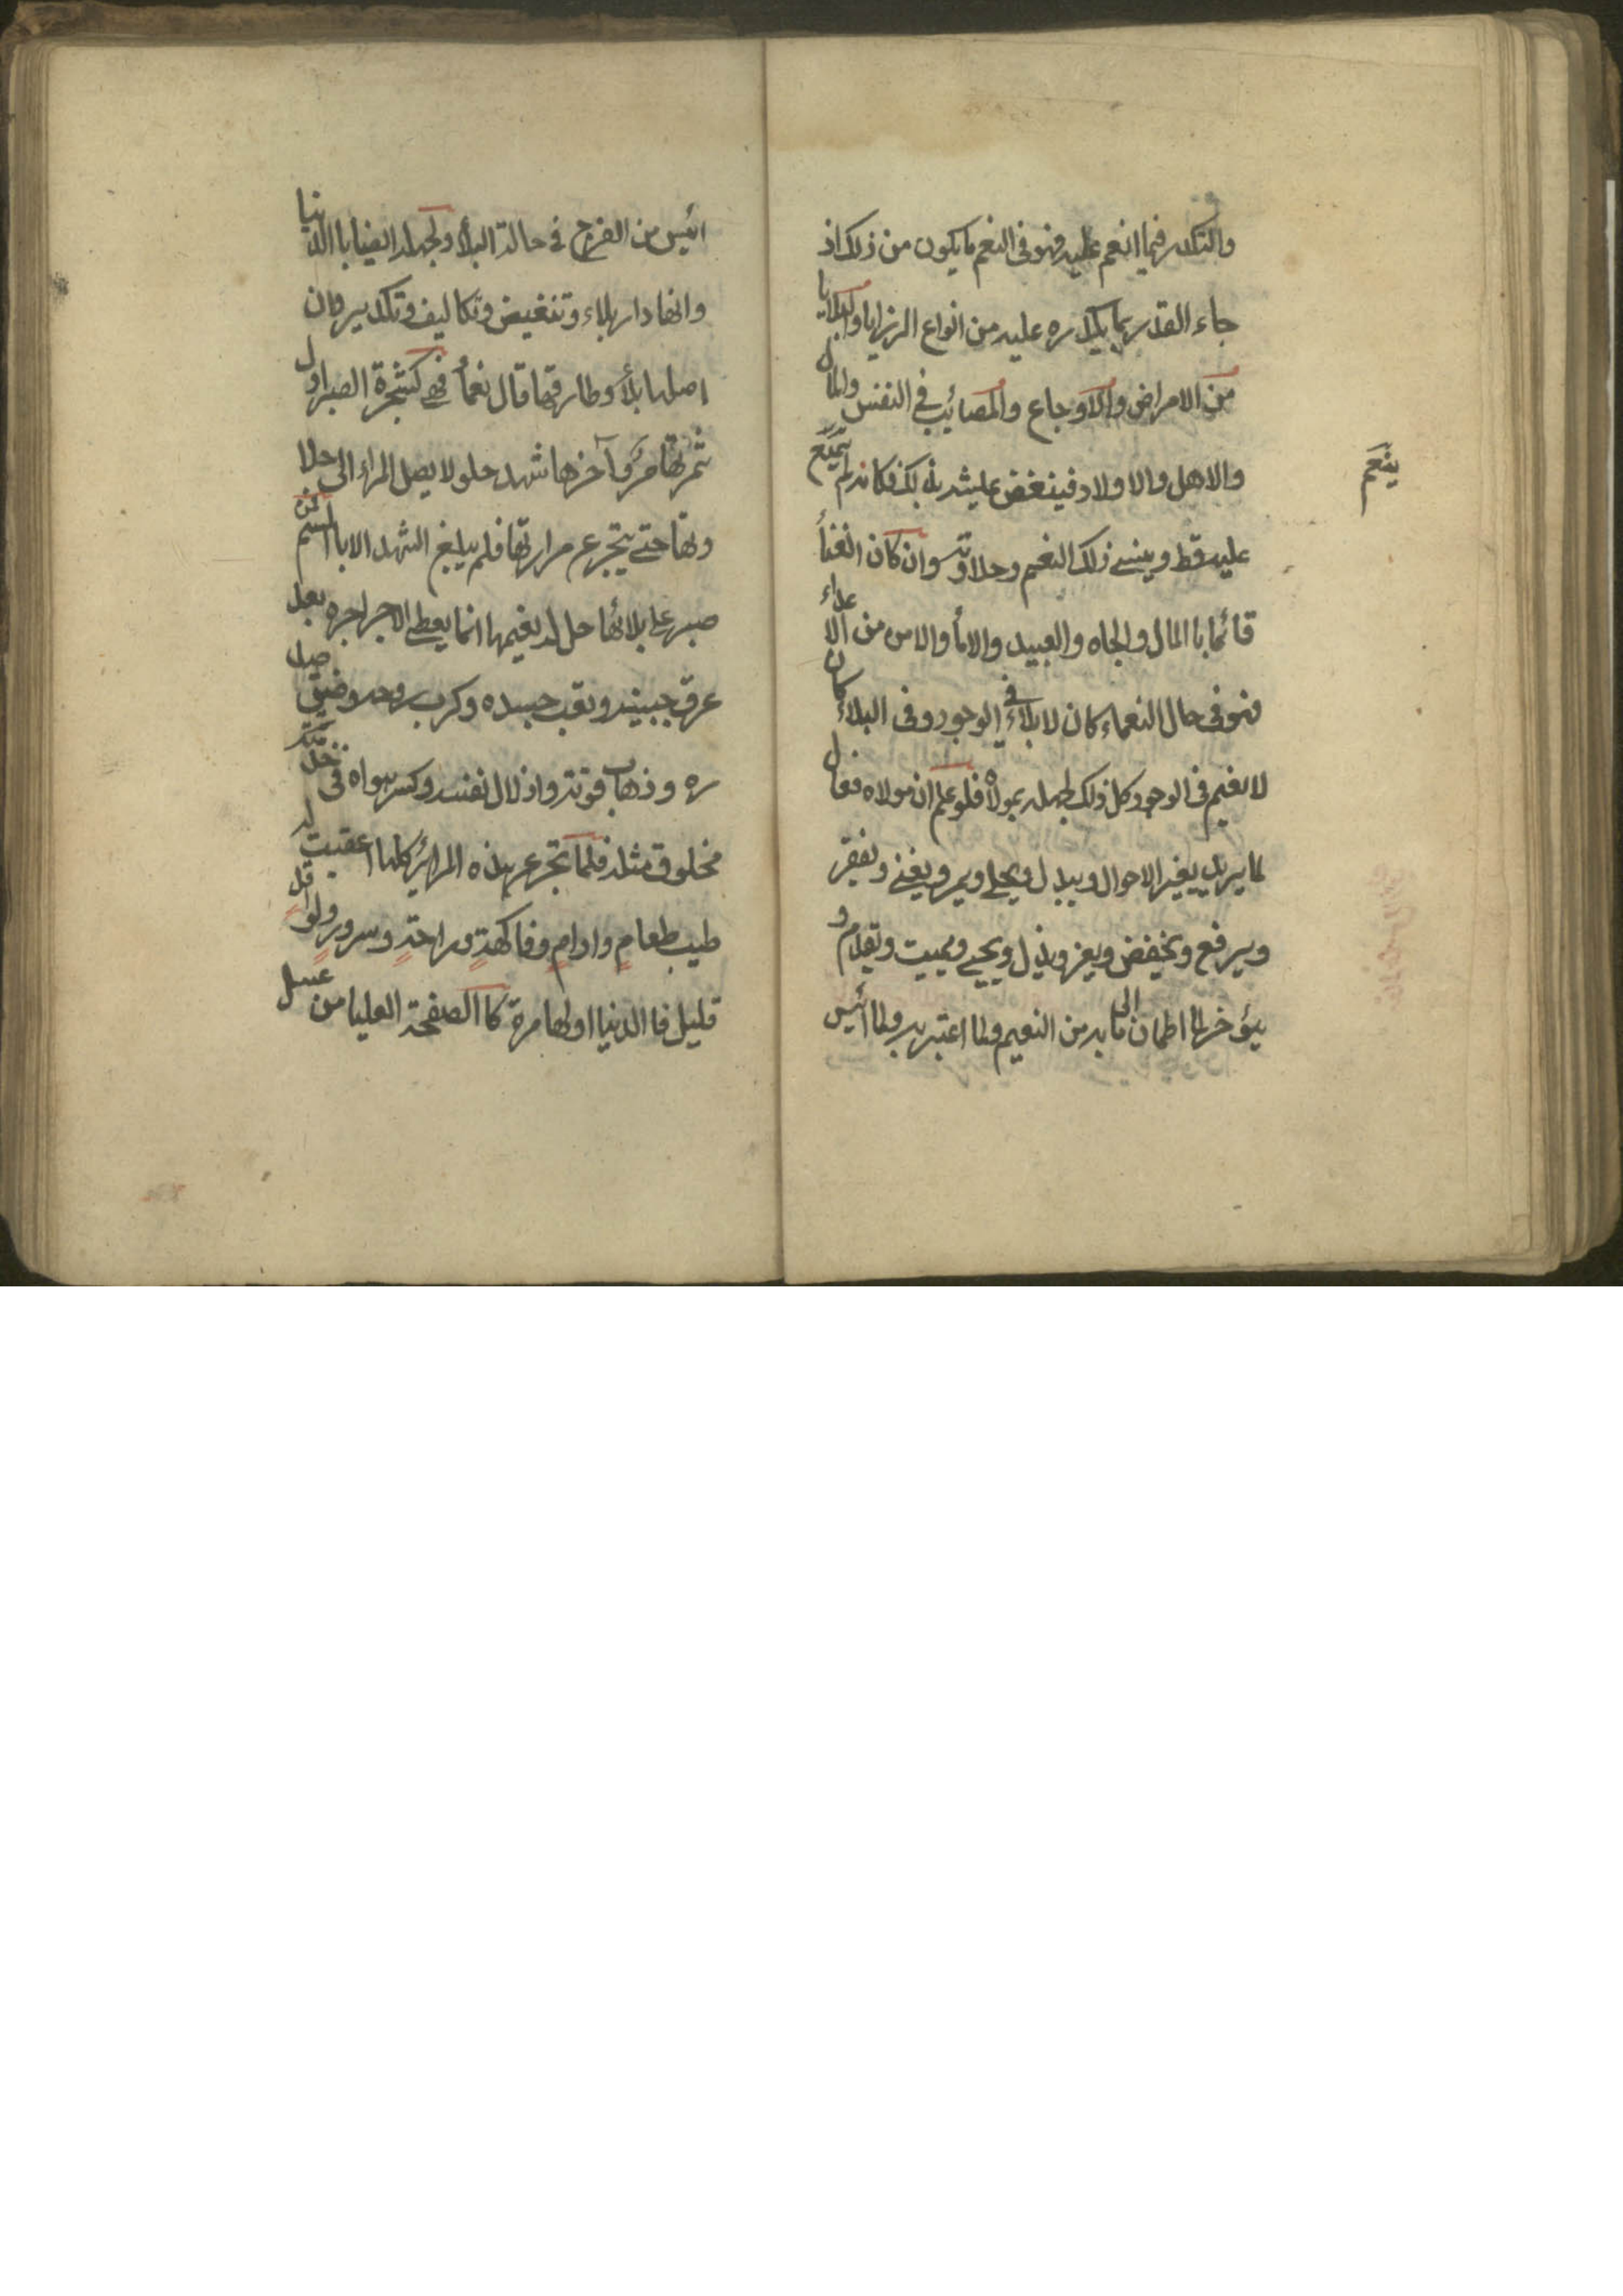 والتكدر فيما انعم عليه فهو فى النعم ما يكون من ذلك اذ
جاء القدر بما يكدره عليه من انواع الرزايا والبلايا
من الامراض والاوجاع والمصائب في النفس والمال
والاهل والاولاد فينغض عليشه بذلك فكانه لم
ينعم
عليه قط وينسے ذلك النعيم وحلاوته وان كان الغنأ
قائما باالمال والجاه والعبيد والامأ والامن من الاعداء
فهو فى حال النعماء كان لا بلاء في الوجود وفى البلاء كان
لا نعيم فى الوجود كل ذلك لجهله بمولاه فلو علم ان مولاه فعال
لما يريد يغير الاحوال ويبدل ويحلے ويمر ويغنے ويفقر
ويرفع ويخفض ويعز ويذل ويحيے ويميت ويقدم و
يؤخر لما اطمان الى ما به من النعيم ولما اعتبر به ولما ائيس
ائيس من الفرج في حالة البلأ ولجهله ايضا باالدنيا
وانها دار بلاء وتنغيض وتكاليف وتكدير وان
اصلها بلأ وطارقها قال نعمأ فهے كشجرة الصبر اول
ثمرتها مر وآخرها شهد حلو لا يصل المراء الى حلا
وتها حتے يتجرع مرارتها فلم يبلغ الشهد الا باالسم فمن
صبر على بلائها حل له نعيمها انما يعطے الاجر اجره بعد
عرق جبينه وتعب جسده وكرب روحه وضيق صد
ره وذهاب قوته واذلال نفسه وكسر هواه فى خدمة
مخلوق مثله فلما تجرع هذه المرائر كلها اعقبت له
طيب طعام وادام وفاكهة وراحة وسرور ولو اقل
قليل فا الدنيا اولها مرة كا الصفحة العليا من عسل